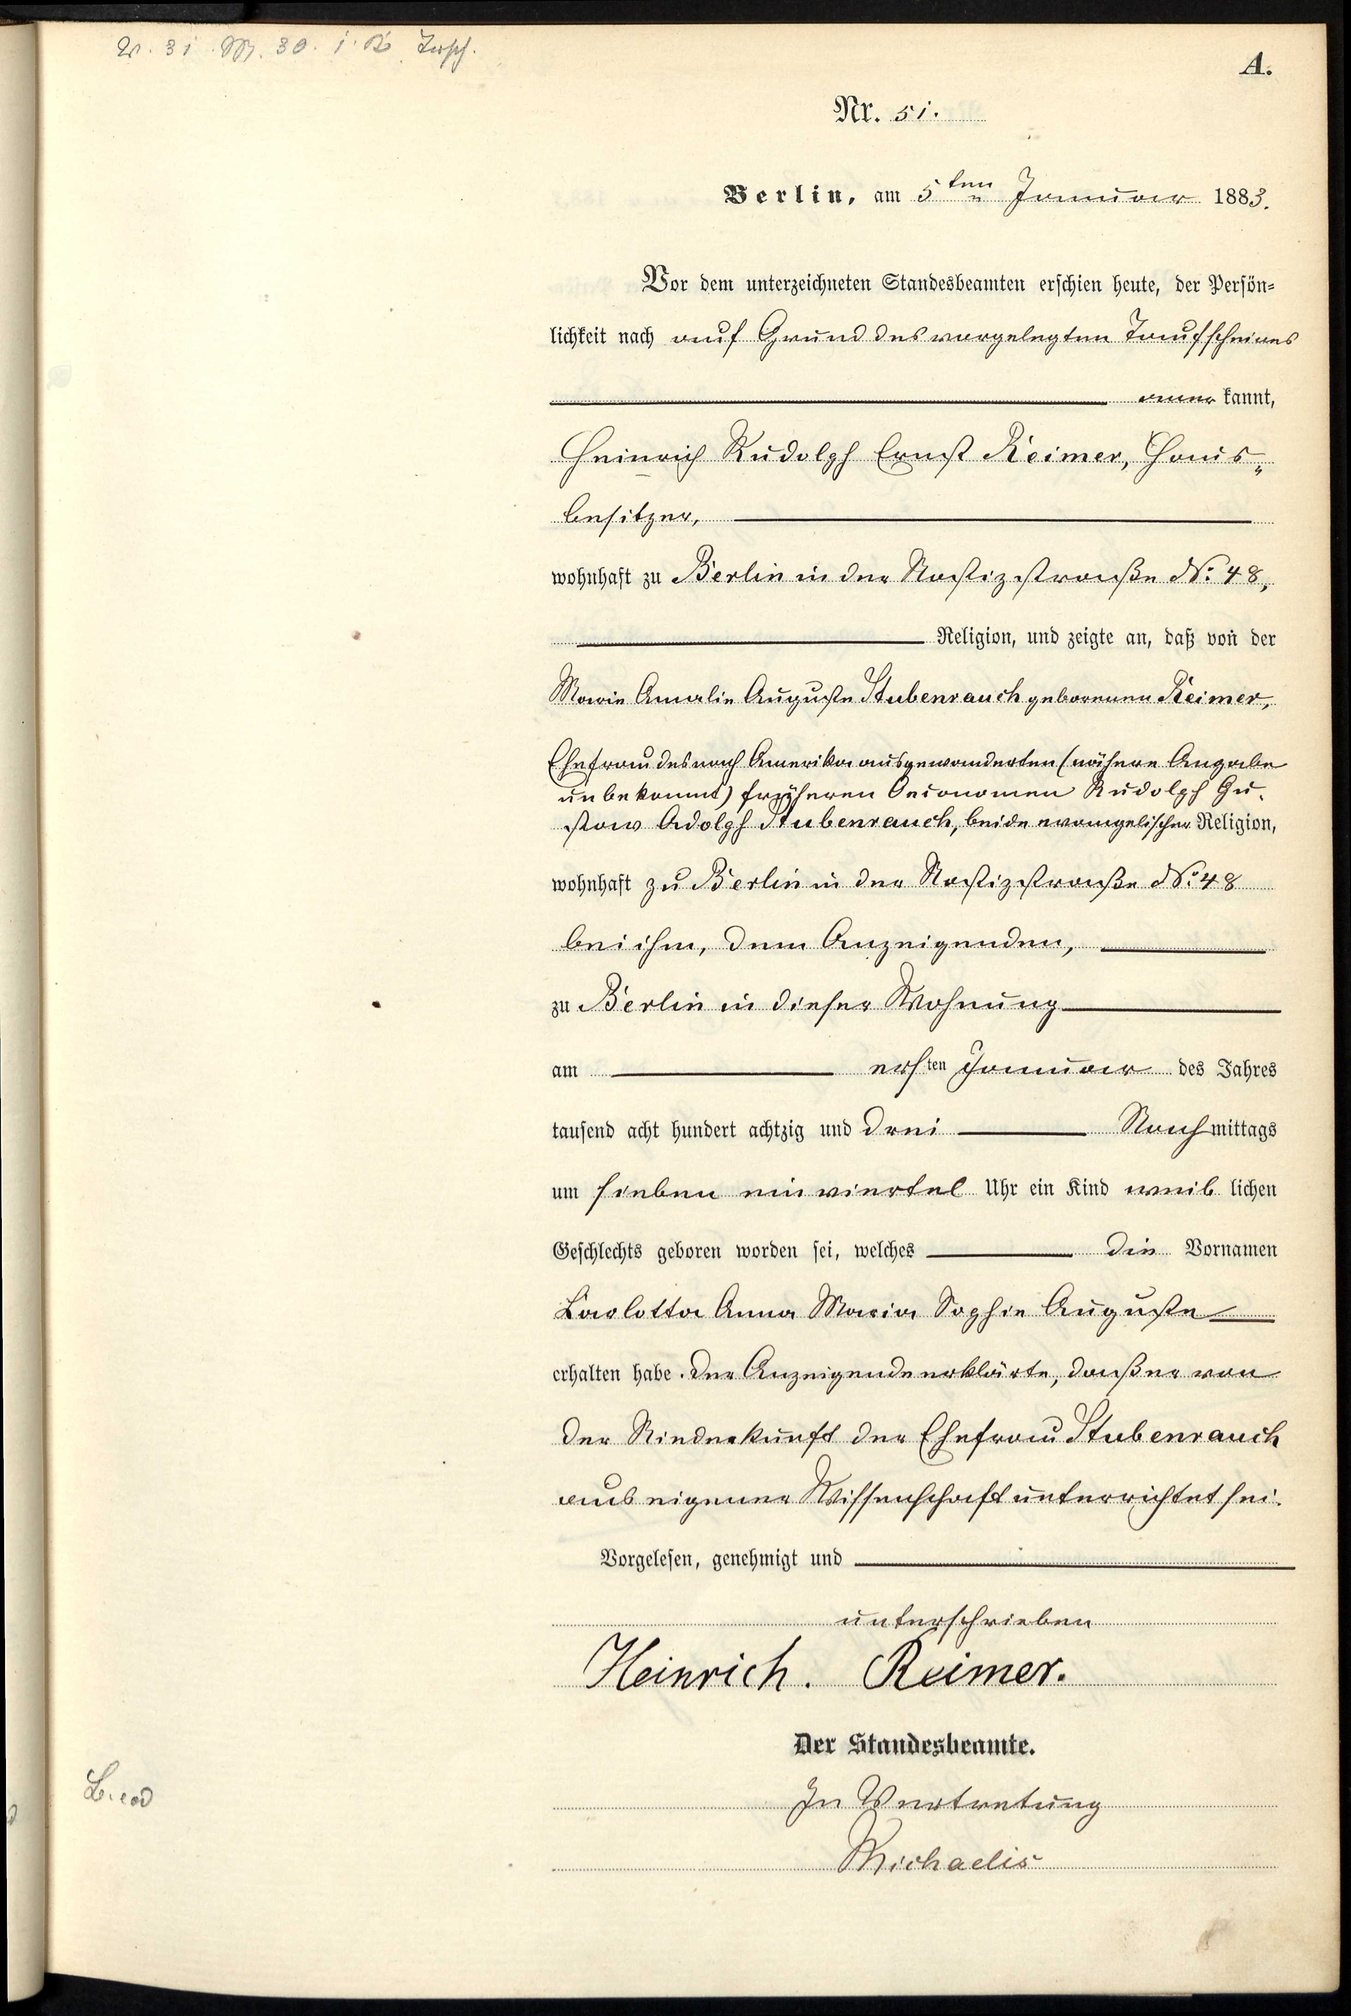 A.
Nr. 51.
Berlin, am 5ten Januar 1883.
Vor dem unterzeichneten Standesbeamten erschien heute, der Persön-
lichkeit nach auf Grund des vorgelegten Taufscheines
aner kannt,
Heinrich Rudolph Ernst Reimer, Haus-
besitzer,
wohnhaft zu Berlin in der Nostizstraße No. 48,
Religion, und zeigte an, daß von der
Marie Amalie Auguste Stubenrauch geborenen Reimer,
Ehefrau des nach Amerika ausgewanderten (nähere Angabe
unbekannt) früheren Oeconomen Rudolph Gu-
stav Adolph Stubenrauch, beide evangelischer Religion,
wohnhaft zu Berlin in der Nostizstraße No. 48
bei ihm, dem Anzeigenden,
zu Berlin in dieser Wohnung
am ersten Januar des Jahres
tausend acht hundert achtzig und drei Nachmittags
um sieben ein viertel Uhr ein Kind weib lichen
Geschlechts geboren worden sei, welches die Vornamen
Carlotta Anna Maria Sophie Auguste
erhalten habe. Der Anzeigende erklärte, daß er von
der Niederkunft der Ehefrau Stubenrauch
aus eigener Wissenschaft unterrichtet sei.
Vorgelesen, genehmigt und
unterschrieben
Heinrich. Reimer.
Der Standesbeamte.
In Vertretung
Michaelis